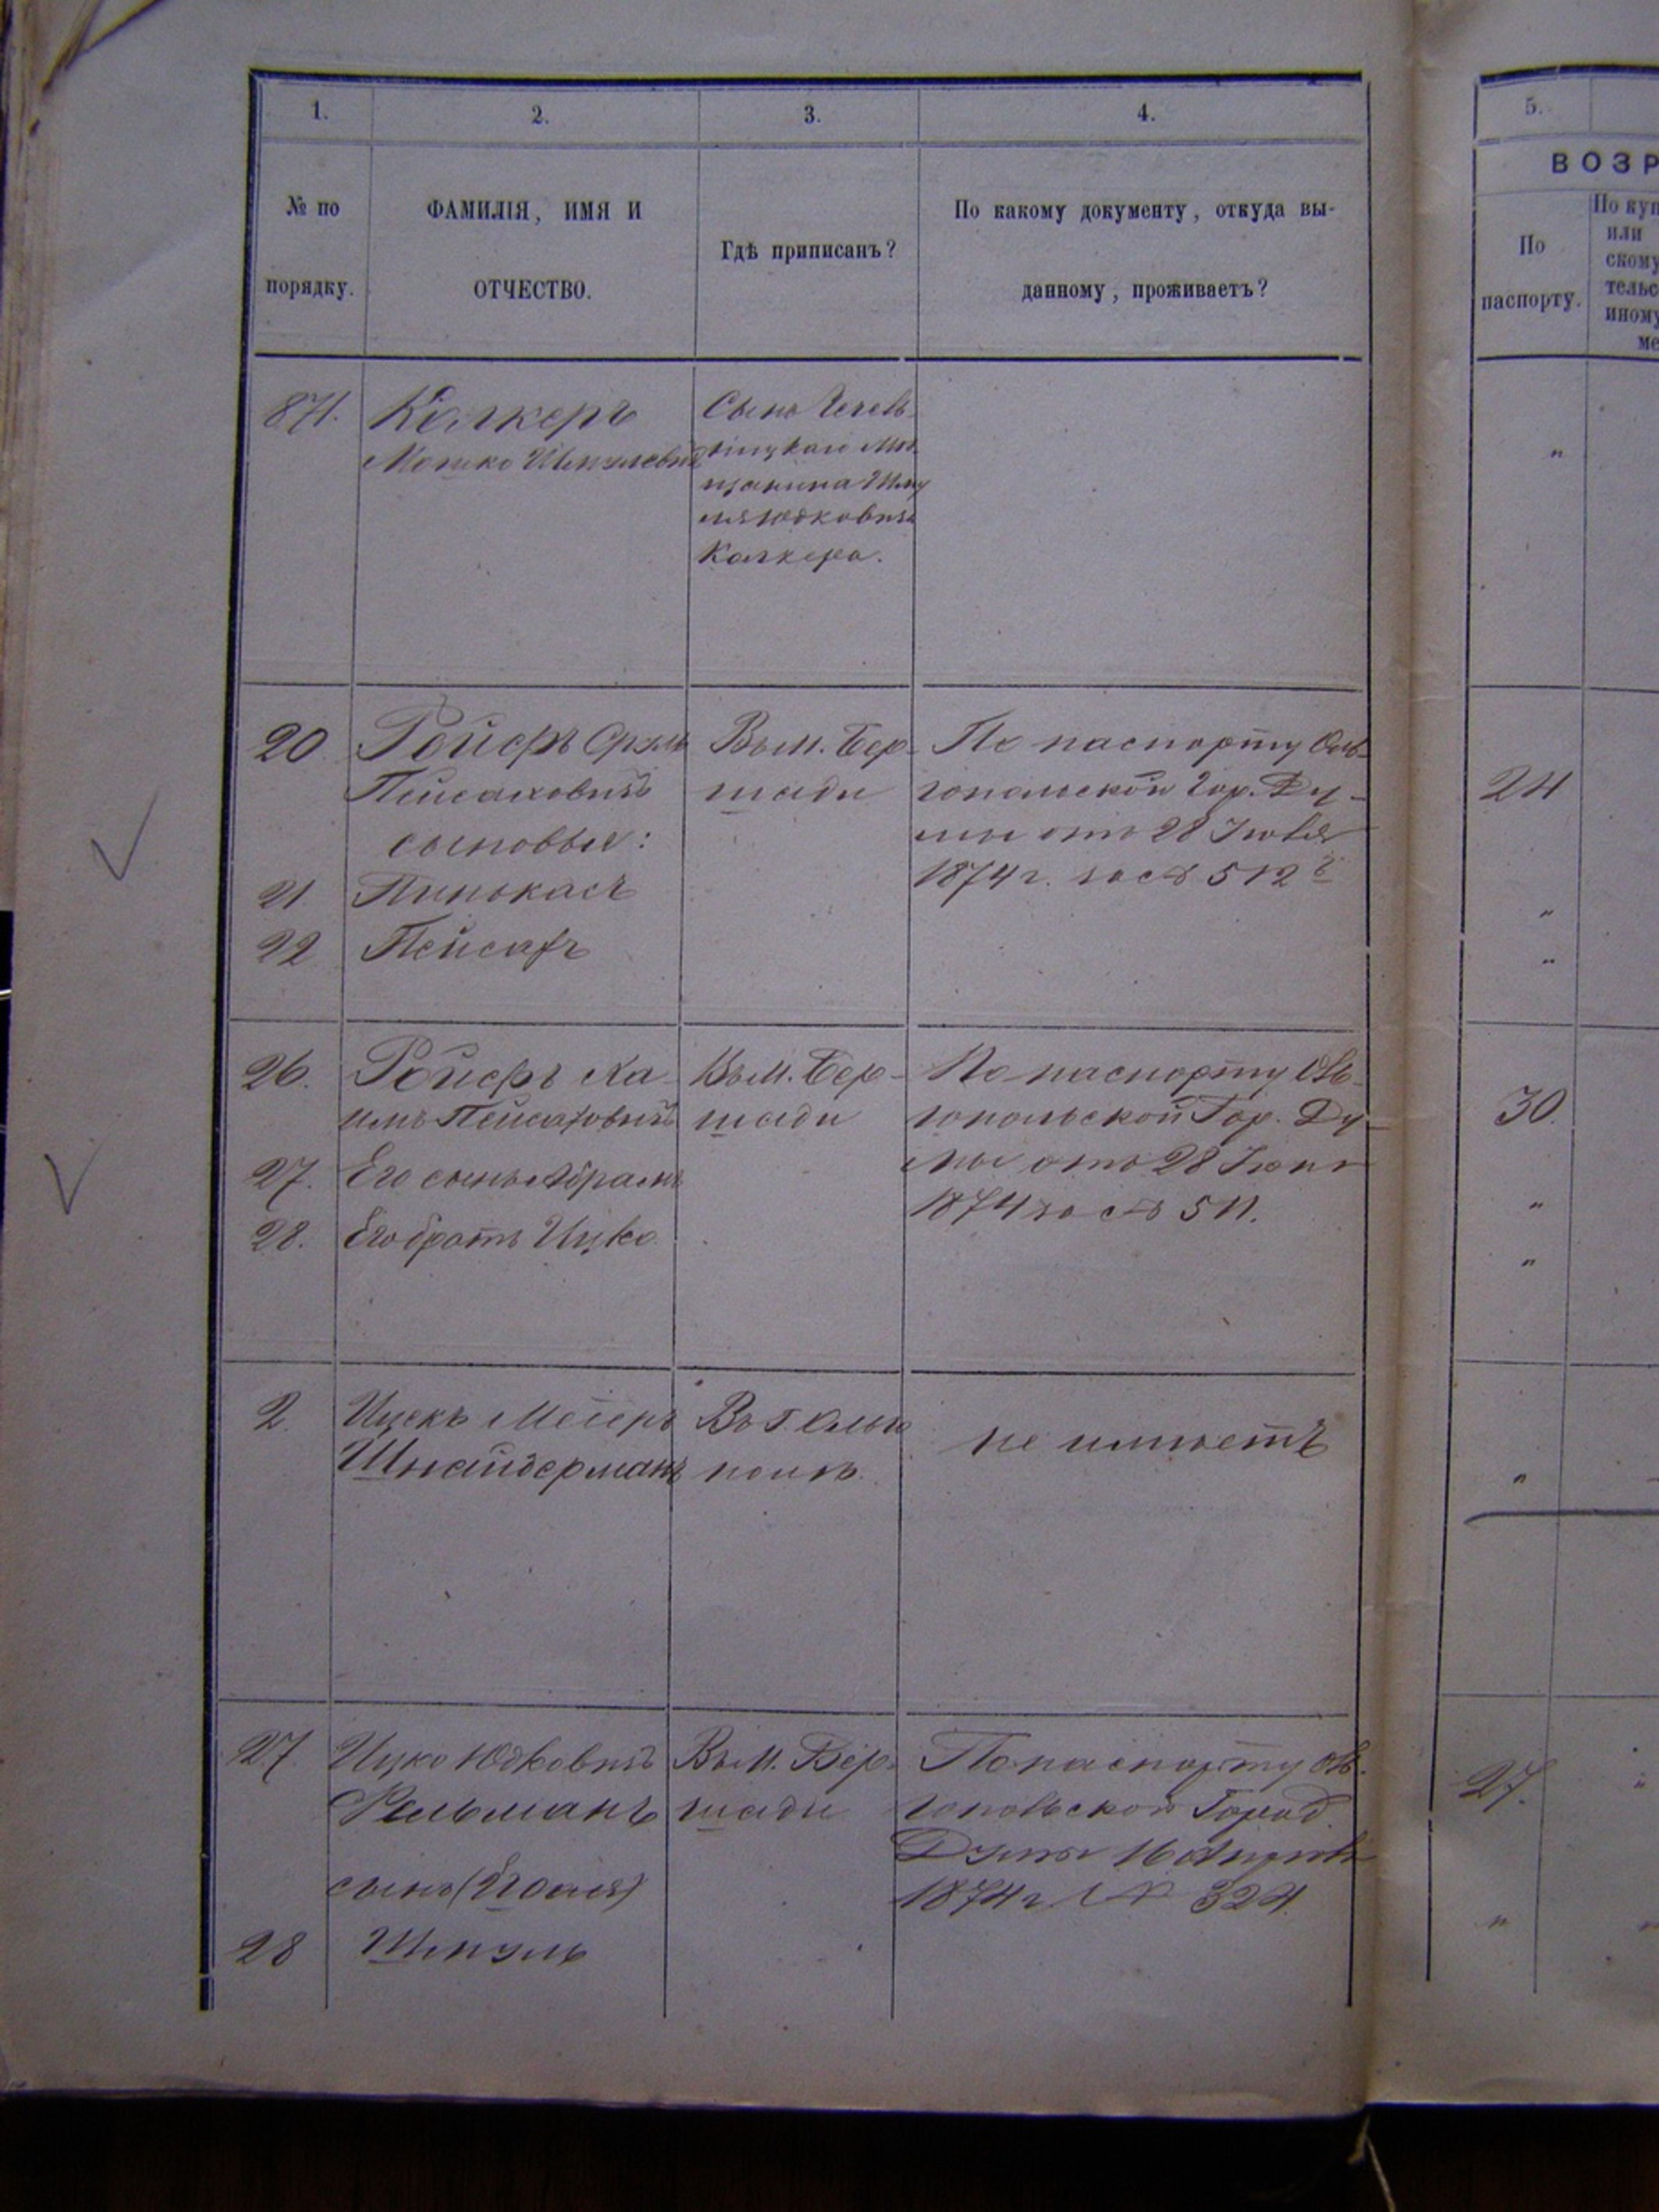 1.
2.
3.
4.
5.
ВОЗР
№ по
порядку.
ФАМИЛІЯ, ИМЯ И
ОТЧЕСТВО.
Гдѣ приписанъ?
По какому документу, откуда вы-
данному, проживаетъ?
По
паспорту.
По куп
или
скому
тельс
иному
ме
871.
Калкеръ
Мошко Шмулевичъ
Сынъ
щанина Шму
ля Юдковича
Калкера.
"
20.
Ройфъ Сруль
Пейсаховичъ
сыновья:
21.
Пинькасъ
22
Пейсахъ
Въ м. Бер-
шади
По паспорту Оль-
гопольской Гор. Ду-
мы отъ 28 Іюня
1874 г. за № 512
24
"
"
26.
Ройфъ Ха-
имъ Пейсаховичъ
27.
Его сынъ Абрамъ
28.
Его братъ Ицко
Въ м. Бер-
шади
По паспорту Оль-
гопольской Гор. Ду-
мы отъ 28 Іюня
1874 за № 511.
30.
"
"
2.
Ицекъ Меіеръ
Шнайдерманъ
Въ г. Ольго
полѣ.
не имѣетъ
"
27.
Ицко Юдковичъ
сынъ (Его)
28
Шмуль
Въ м. Бер-
шади
По паспорту Оль-
гопольской Город.
Думы 16 Апрѣля
1874 г. № 324.
27.
"
"